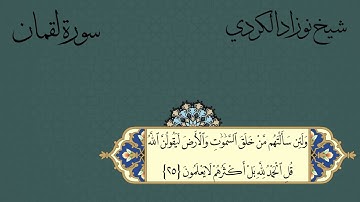 شيخ نوزاد الكردي
سورة لقمان
وَلَئِن سَأَلْتَهُم مَّنْ خَلَقَ ٱلسَّمَٰوَٰتِ وَٱلْأَرْضَ لَيَقُولُنَّ ٱللَّهُ
قُلِ ٱلْحَمْدُ لِلَّهِ بَلْ أَكْثَرُهُمْ لَا يَعْلَمُونَ {٢٥}